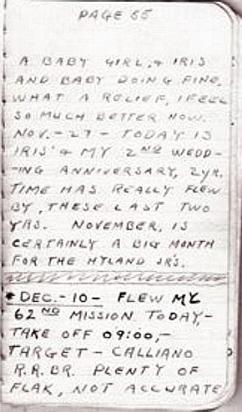 PAGE 65
A BABY GIRL, & IRIS
AND BABY DOING FINE.
WHAT A RELIEF, I FEEL
SO MUCH BETTER NOW.
NOV.-27- TODAY IS
IRIS' & MY 2ND WEDD-
-ING ANNIVERSARY, 2YR.
TIME HAS REALLY FLEW
BY, THESE LAST TWO
YRS. NOVEMBER, IS
CERTAINLY A BIG MONTH
FOR THE HYLAND JR'S.
DEC.-10- FLEW MY
62ND MISSION TODAY,-
TAKE OFF 09:00,-
TARGET - CALLIANO
R.R. BR. PLENTY OF
FLAK, NOT ACCURATE